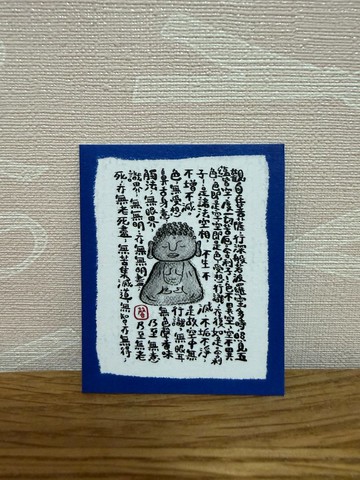 觀自在菩薩行深般若波羅蜜多時照見五
蘊皆空度一切苦厄舍利子色不異空空不異
色色即是空空即是色受想行識亦復如是舍利
子是諸法空相不生不滅不垢不淨
不增不減是故空中無
色無受想行識無眼耳
鼻舌身意無色聲香味
觸法無眼界乃至無意
識界無無明亦無無明盡乃至無老
死亦無老死盡無苦集滅道無智亦無得